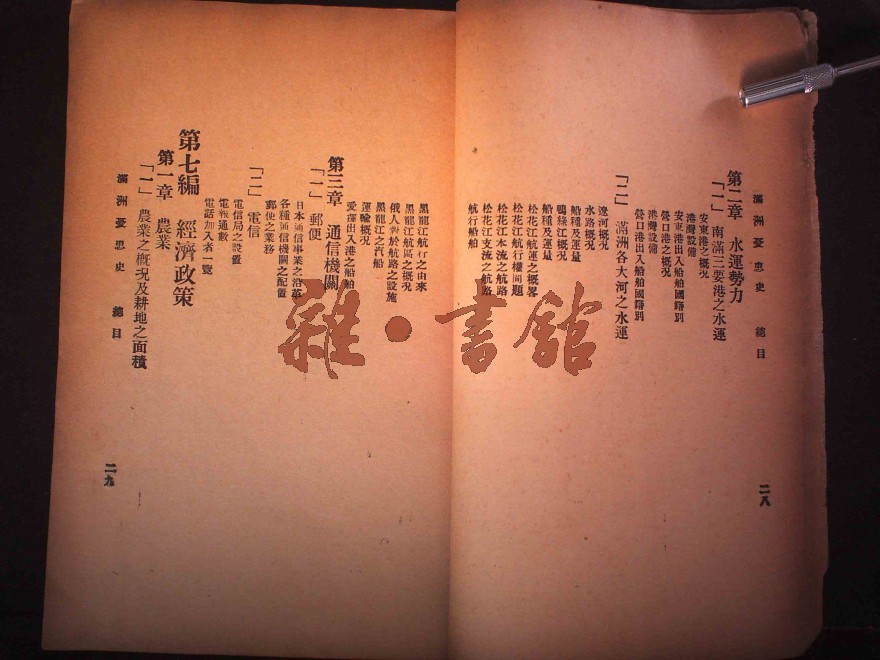 滿洲憂患史 總目
第二章 水運勢力
「一」南滿三要港之水運
安東港之概況
港灣設備
安東港出入船舶國籍別
營口港之概況
港灣設備
營口港出入船舶國籍別
「二」滿洲各大河之水運
遼河概況
水路概況
船種及運量
鴨綠江概況
船種及運量
松花江航運之概畧
松花江航行權問題
松花江本流之航路
松花江支流之航路
航行船舶
二八
黑龍江航行之由來
黑龍江航區之概況
俄人對於航路之設施
黑龍江之汽船
運輸概況
愛琿出入港之船舶
第三章 通信機關
「一」郵便
日本通信事業之沿革
各種通信機關之配置
郵便之業務
「二」電信
電信局之設置
電報通數
電話加入者一覽
第七編 經濟政策
第一章 農業
「一」農業之概況及耕地之面積
滿洲憂患史 總目
二九
雜·書館